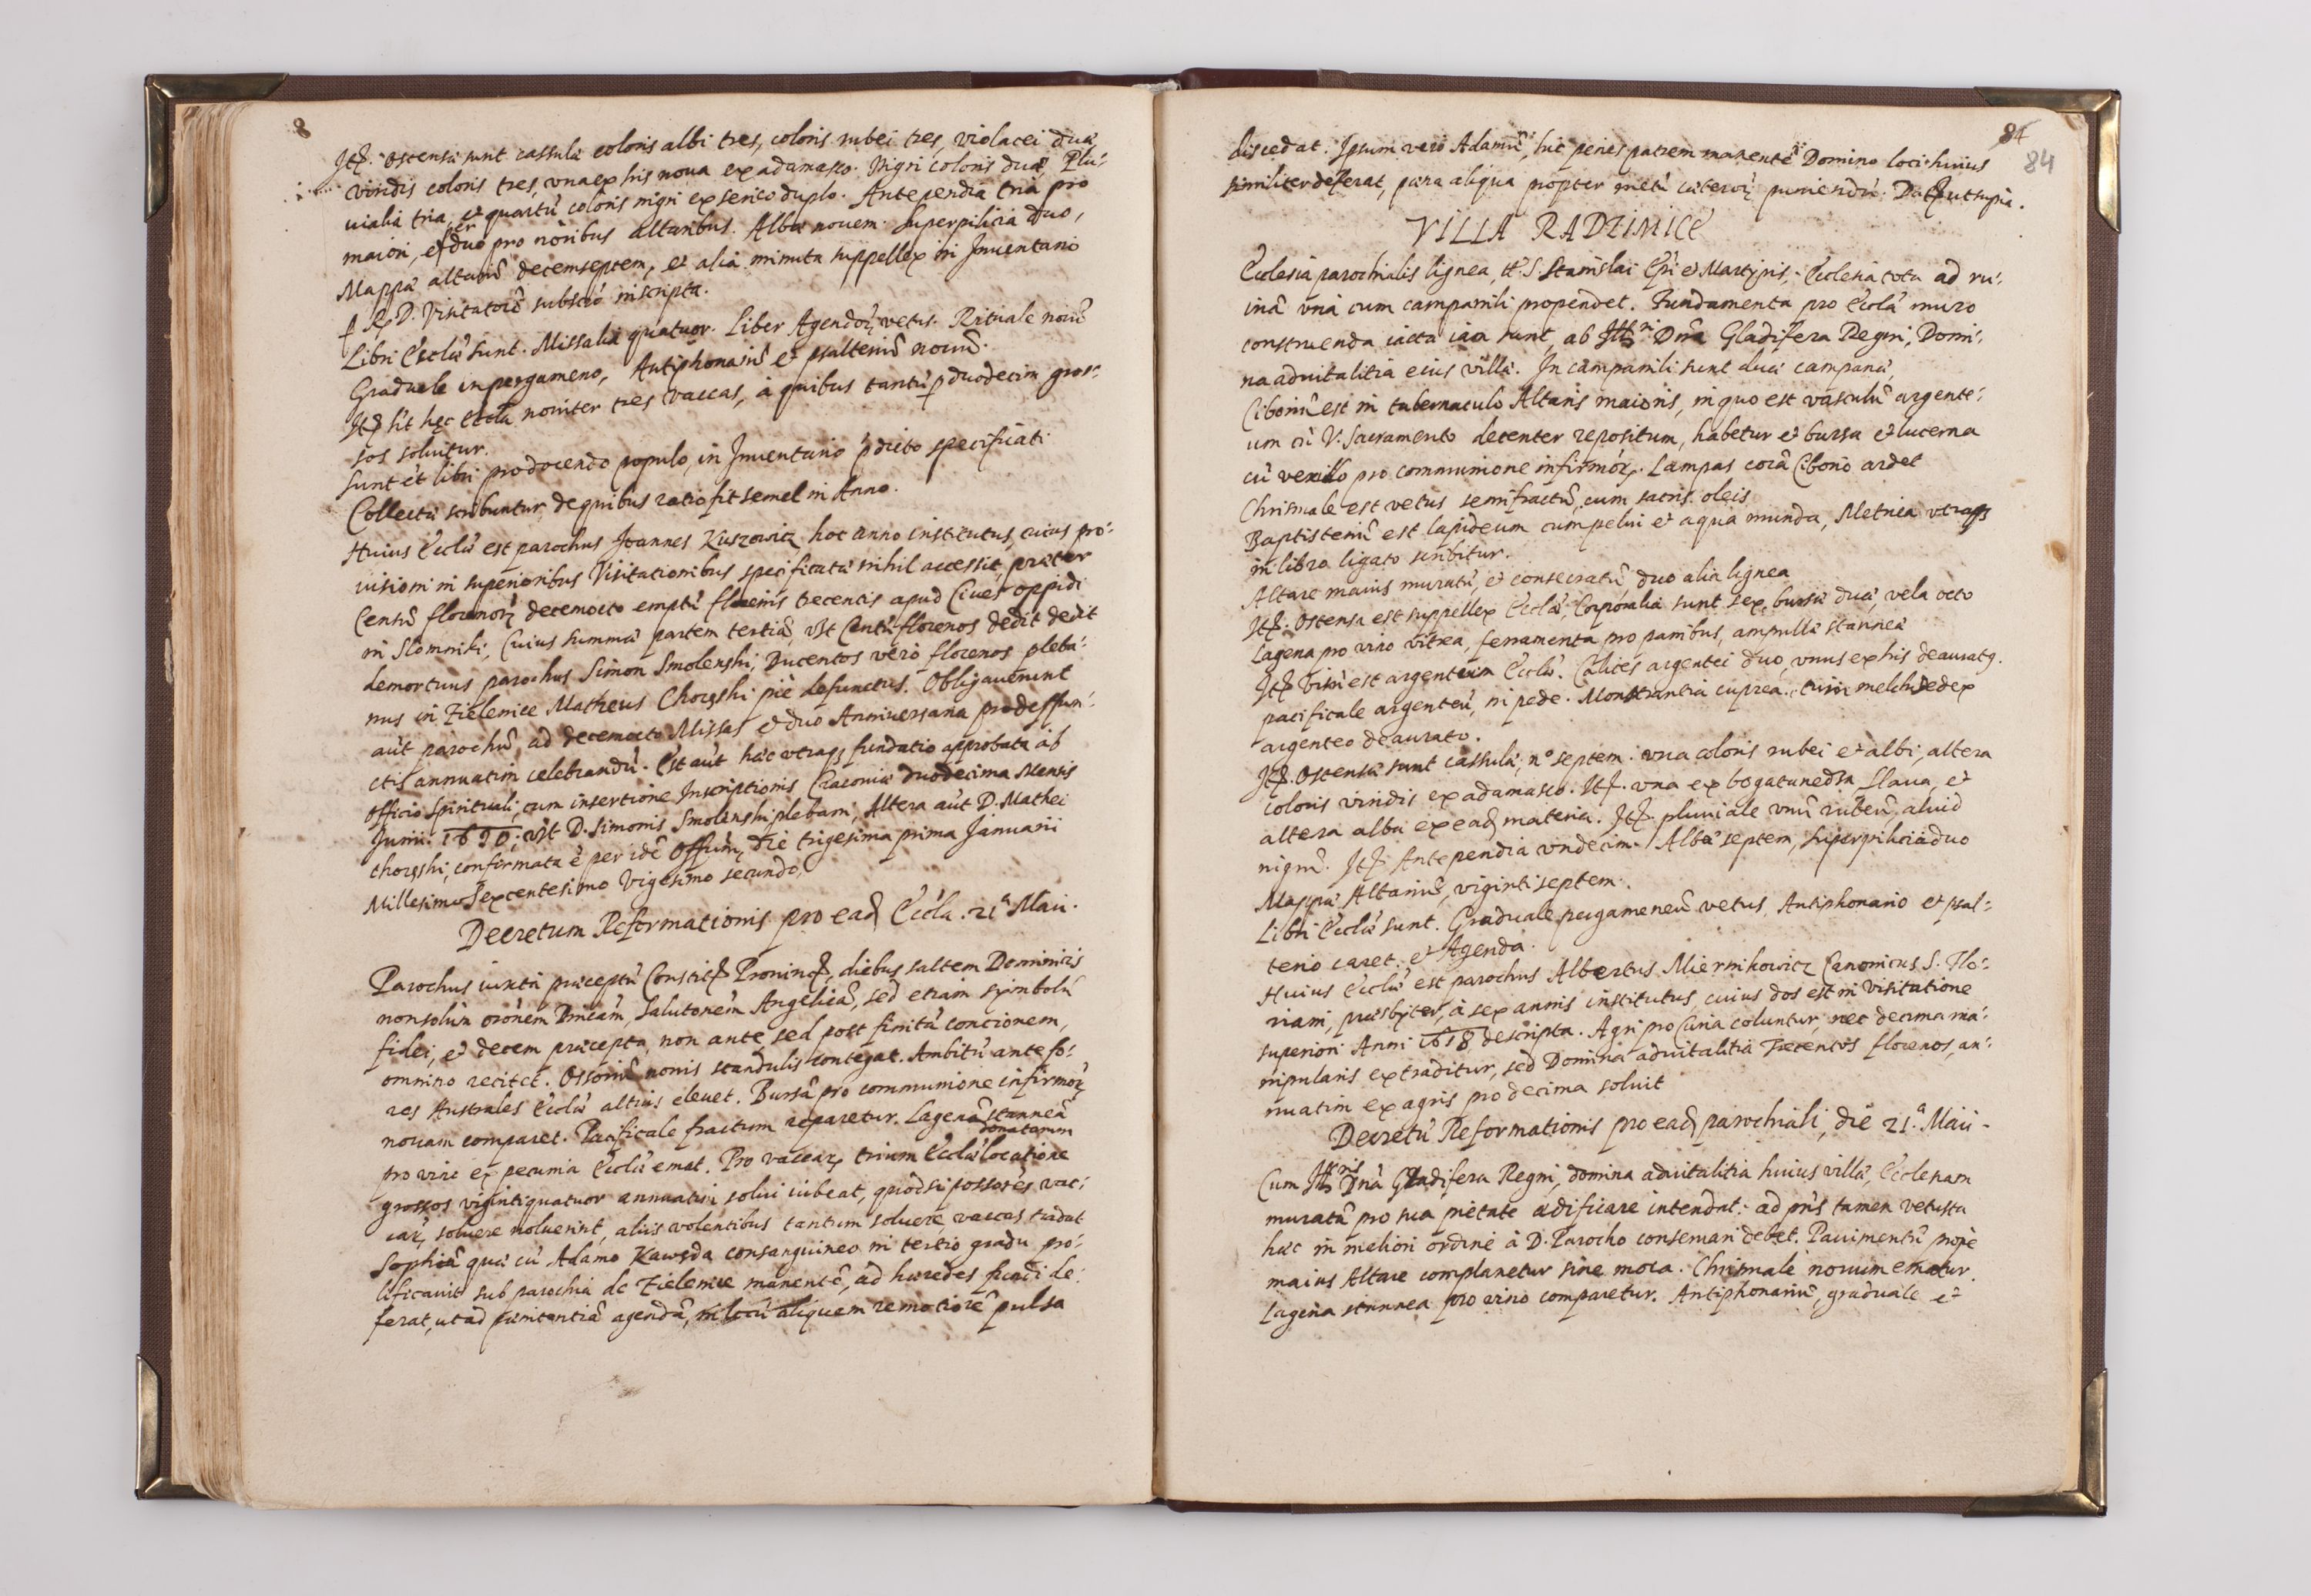 8
Itē. ostensæ sunt cassulæ coloris albi tres, coloris rubei tres, violacei duæ,
viridis coloris tres, vna ex his noua ex adamasco. Nigri coloris duæ, Plu:
uialia tria, et quartū coloris nigri ex serico duplo. Antependia tria pro
maiori, et duo pro noribus altaribus. Albæ nouem. Superpilicia duo,
Mappæ altariū decemseptem, et alia minuta suppellex in Inuentario
R. D. Visitatorē subscrō inscripta.
Libri Ecclæ sunt. Missalia quatuor. Liber Agendoꝝ vetus. Rituale nouū
Graduale in pergameno, Antiphonariū et psalteriū nouū.
Itē hēt hęc Eccla nouiter tres vaccas, à quibus tantū p duodecim gros:
sos soluitur.
Sunt et libri pro docendo populo, in Inuentario p̄dicto specificati
Collectæ scribuntur de quibus ratio fit semel in Anno.
Huius Ecclæ est parochus Joannes Kuszowicz hoc anno institutus, cuius pro:
uisioni in superioribus Visitationibus specificatæ nihil accessit, præter
Centū florenorꝝ decemocto emptū florenis trecentis apud Ciues oppidi
in Slomniki, Cuius summæ partem tertiā, vꝫt Centū florenos dedit dedit
demortuus parochus Simon Smolenski, Ducentos vero florenos pleba:
nus in Zielenice Matheus Chorꝫski piè defunctus. Obligauerunt
aūt parochū ad decemocto Missas et duo Anniuersaria pro deffun:
ctis annuatim celebrandū. Est aūt hæc vtraqꝫ fundatio approbata ab
officio Spirituali, cum insertione Inscriptionis Cracouiæ duodecima Mensis
Junii 1620, vꝫt D. Simonis Smolenski plebani, Altera aūt D. Mathei
Chorꝫski, confirmata ē per idē Offium, die trigesima prima Januarii
Millesimo Sexcentesimo Vigesimo secundo,
Decretum Reformationis pro eadꝫ Eccla. 21ª Maii.
Parochus iuxta præceptū Constitꝫ Prouincꝫ, diebus saltem Dominicis
non solùm orōnem Dnicam, Salutonem Angelicā, sed etiam symbolū
fidei, et decem præcepta, non ante, sed post finitā concionem,
omnino recitet. Ossoriū nouis scandulis contegat. Ambitū ante fo:
res Australes Ecclæ altius eleuet. Bursā pro communione infirmorꝝ
nouam comparet. Pacificale fractum reparetur. Lagenā stanneā
pro vino ex pecunia Ecclæ emat. Pro vaccarꝝ trium Ecclæ donatarum locatione
grossos vigintiquatuor annuatim solui iubeat, quòd si possores vac:
carꝝ soluere noluerint, aliis volentibus tantum soluere, vaccas tradat
Sophiā quæ cū Adamo Kawęda consanguineo in tertio gradu pro:
lificauit sub parochia de Zielenice manentē, ad hæredes fundi de:
ferat, ut ad pœnitentiā agendā, in locū aliquem remotiorē pulsa
84
84
discedat. Ipsum verò Adamū, hic penes patrem manentē Domino loci huius
similiter deferat, pæna aliqua propter metū cæterorꝝ puniendū. Datꝫ ut supra.
VILLA RADZIMICE
Ecclesia parochialis lignea, tt. S. Stanislai Epi et Martyris, Ecclesia tota ad ru:
inā vnà cum campanili propendet. Fundamenta pro Eccla muro
construenda iacta iam sunt, ab Illri Dnā Gladifera Regni, Domi:
na aduitalitia eius villæ. In campanili sunt duæ campanæ,
Ciboriū est in tabernaculo Altaris maioris, in quo est vasculū argente:
um cū V. Sacramento decenter repositum, habetur et bursa et lucerna
cū vexillo pro communione infirmorꝝ. Lampas corā Ciborio ardet
Chrismale est vetus semifractū, cum sacris oleis
Baptisteriū est lapideum cum pelui et aqua munda, Metrica vtraqꝫ
in libro ligato scribitur.
Altare maius muratū, et consecratū, duo alia lignea
Itē. Ostensa est suppellex Ecclæ, Corporalia sunt sex, bursæ duæ, vela octo
Lagena pro vino vitrea, ferramenta pro panibus, ampullæ stanneæ
Itē visū est argenteum Ecclæ. Calices argentei duo, vnus ex his deauratꝫ.
pacificale argenteū, in pede. Monstrantia cuprea, cum melchisedex
argenteo deaurato.
Itē. Ostensæ sunt cassulæ, nº septem. vna coloris rubei et albi, altera
coloris viridis ex adamasco. Itē. vna ex bogatunedra flaua, et
altera alba ex eadꝫ materia. Itē. pluuiale vnū rubeū, aliud
nigrū. Itē. Antependia vndecim. Albæ septem, superpilicia duo
Mappæ Altariū, vigintiseptem.
Libri Ecclæ sunt. Graduale pergameneū vetus, Antiphonario et psal:
terio caret, et Agenda.
Huius Ecclæ est parochus Albertus Miernikowicz Canonicus S. Flo:
riani, præsbyter, à sex annis institutus, cuius dos est in Visitatione
superiori Anni 1618 descripta. Agri pro Curia coluntur, nec decima ma:
nipularis extraditur, sed Domina aduitalitia Trecentos florenos, an:
nuatim ex agris pro decima soluit
Decretū Reformationis pro eadꝫ parochiali, die 21ª. Maii.
Cum Illris Dnā Gladifera Regni, domina aduitalitia huius villæ, Ecclesiam
muratā pro sua pietate ædificare intendat: ad prīs tamen vetusta
hæc in meliori ordine à D. Parocho conseruari debet. Pauimentū propè
maius Altare complanetur sine mora. Chrismale nouum ematur.
Lagena stannea pro vino comparetur. Antiphonariū, graduale et